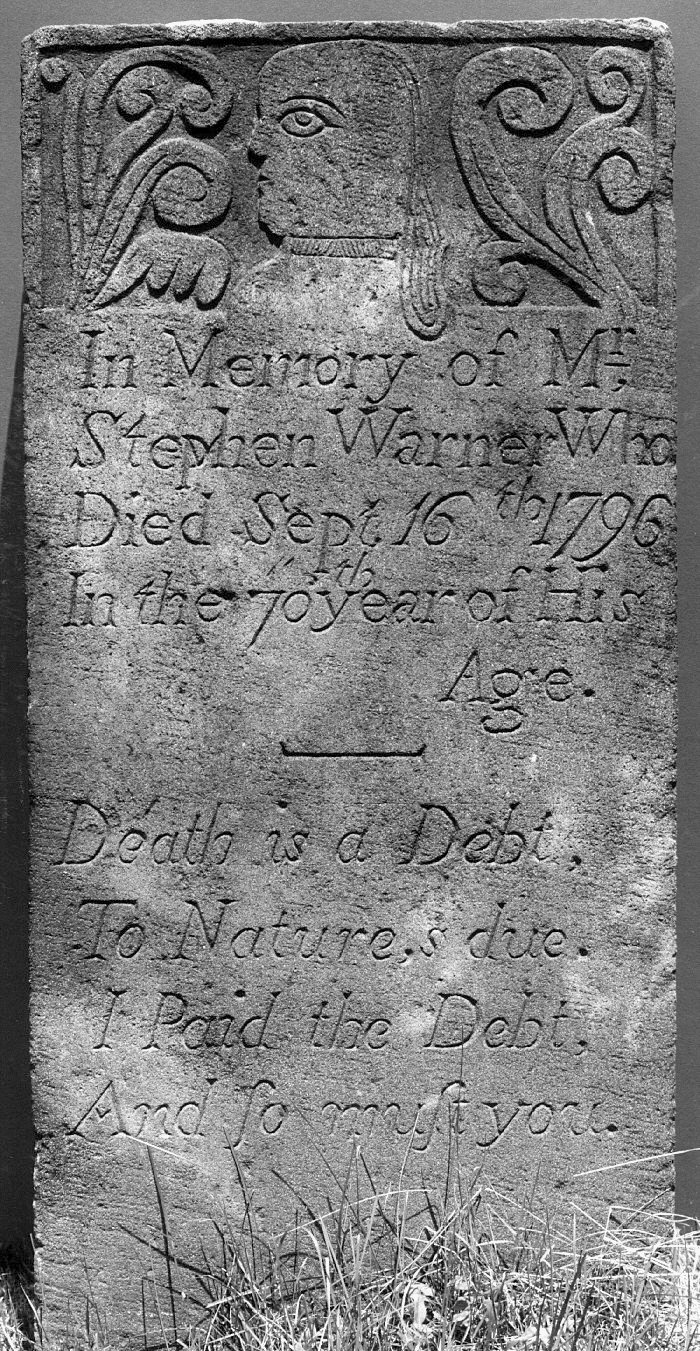 In Memory of Mr.
Stephen Warner Who
Died Sept 16th 1796
In the 70th year of His
Age.
Death is a Debt,
To Nature,s due.
I Paid the Debt,
And ſo muſt you.